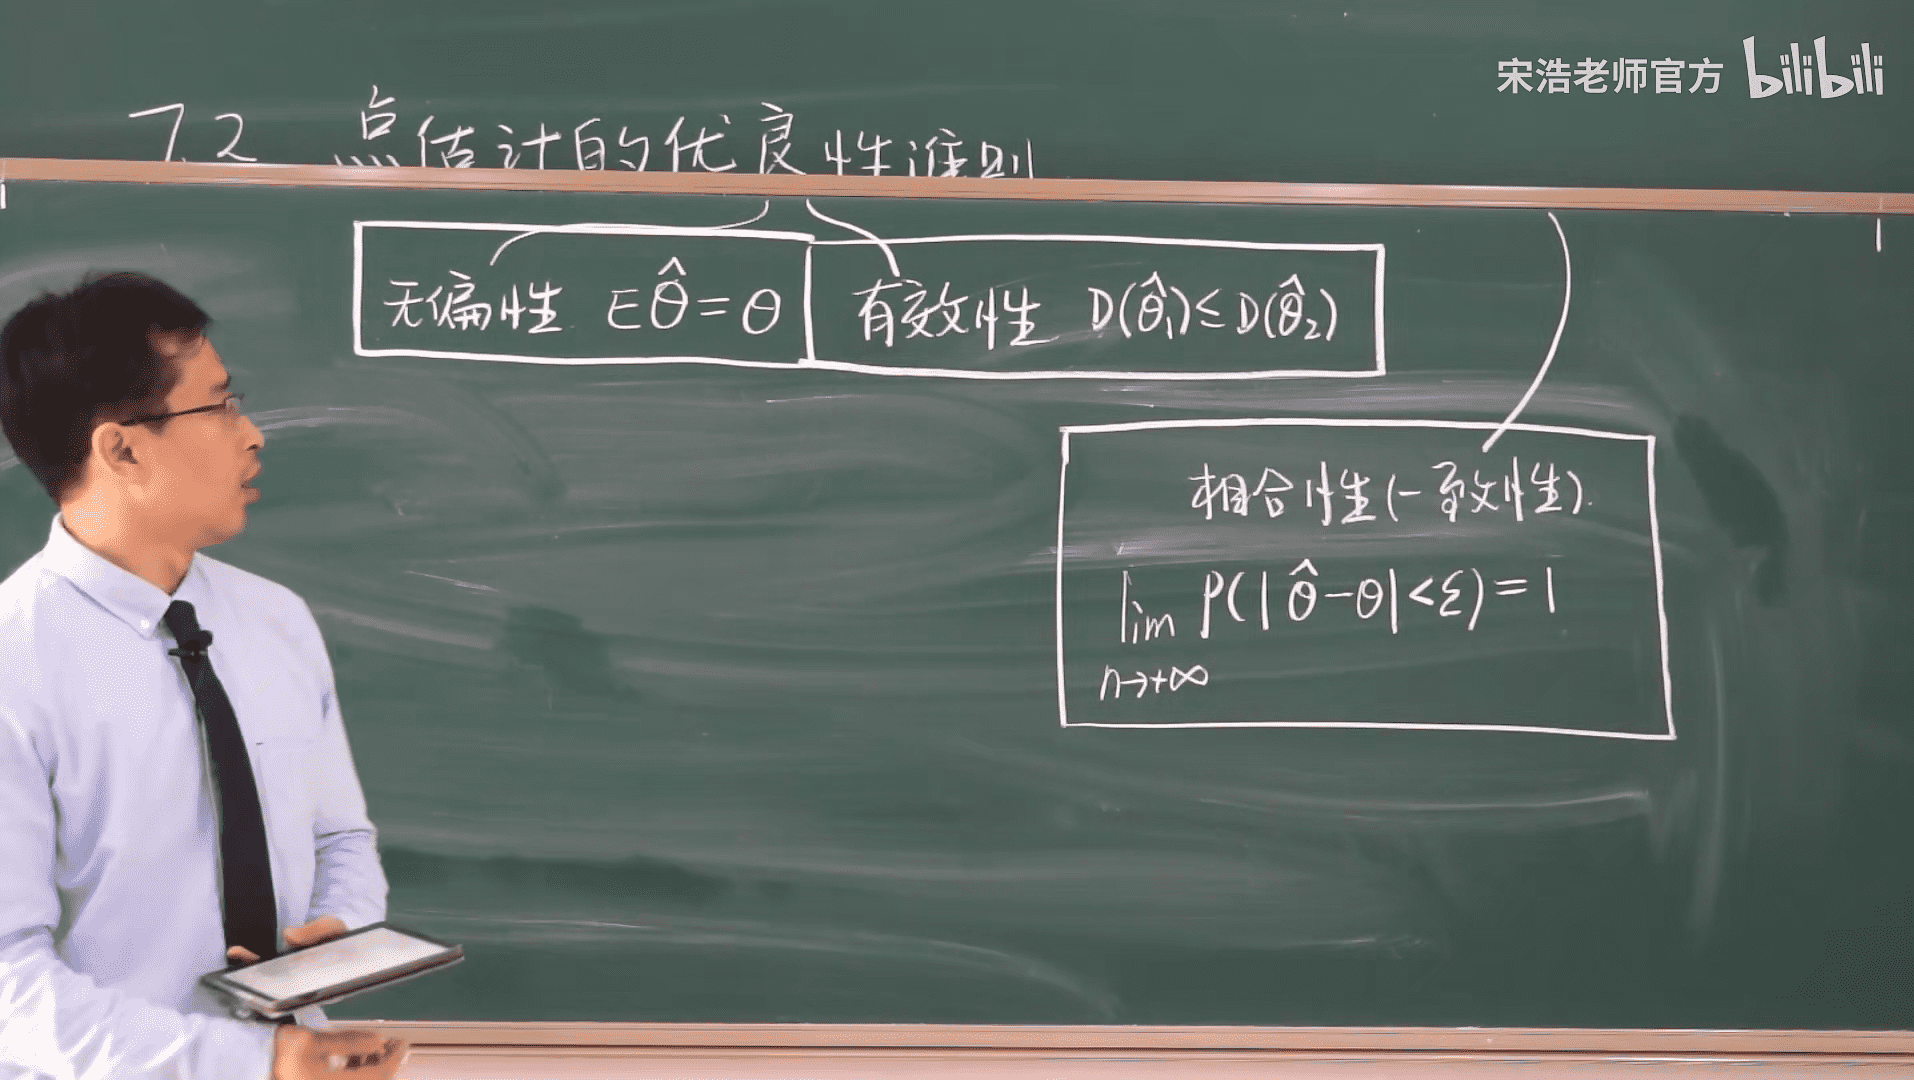 宋浩老师官方 bilibili
7.2 点估计的优良性准则
无偏性 Eθ̂=θ 有效性 D(θ̂₁)≤D(θ̂₂)
相合性(一致性).
lim P(|θ̂-θ|<ε)=1
n→+∞